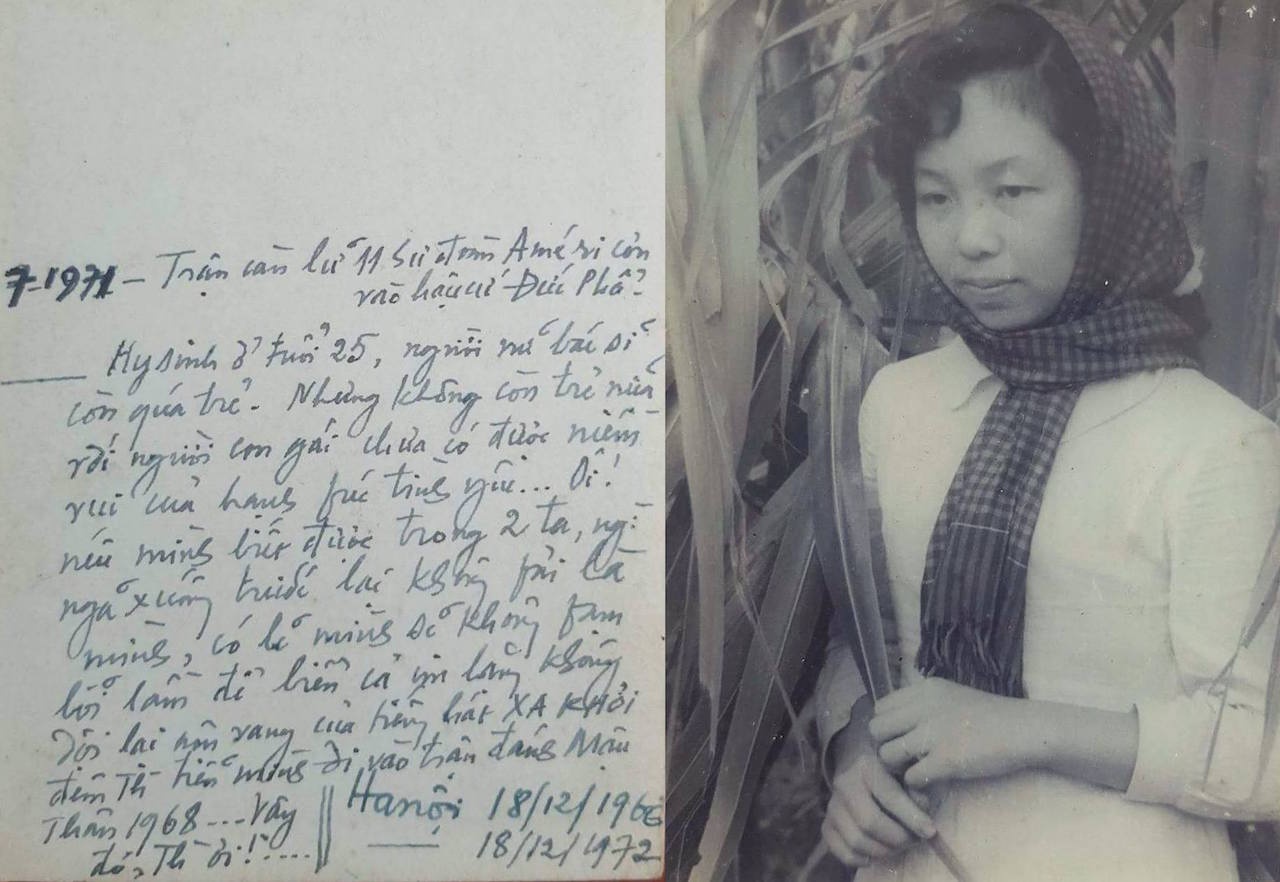 7-1971 - Trận càn lữ 11 Sư đoàn Améri còn
vào hậu cứ Đức Phổ.
Hy sinh ở tuổi 25, người nữ bác sĩ
còn quá trẻ. Nhưng không còn trẻ nữa
với người con gái chưa có được niềm
vui của hạnh fúc tình yêu... Ôi!
nếu mình biết được trong 2 ta, ng'
ngã xuống trước lại không fải là
mình, có lẽ mình sẽ không fạm
lỗi lầm để biển cả im lặng không
dội lại âm vang của tiếng hát XA KHƠI
đêm Th tiễn mình đi vào trận đánh Mậu
Thân 1968 ... Vậy
đó, Th ơi! ....
Hanội 18/12/1966
18/12/1972